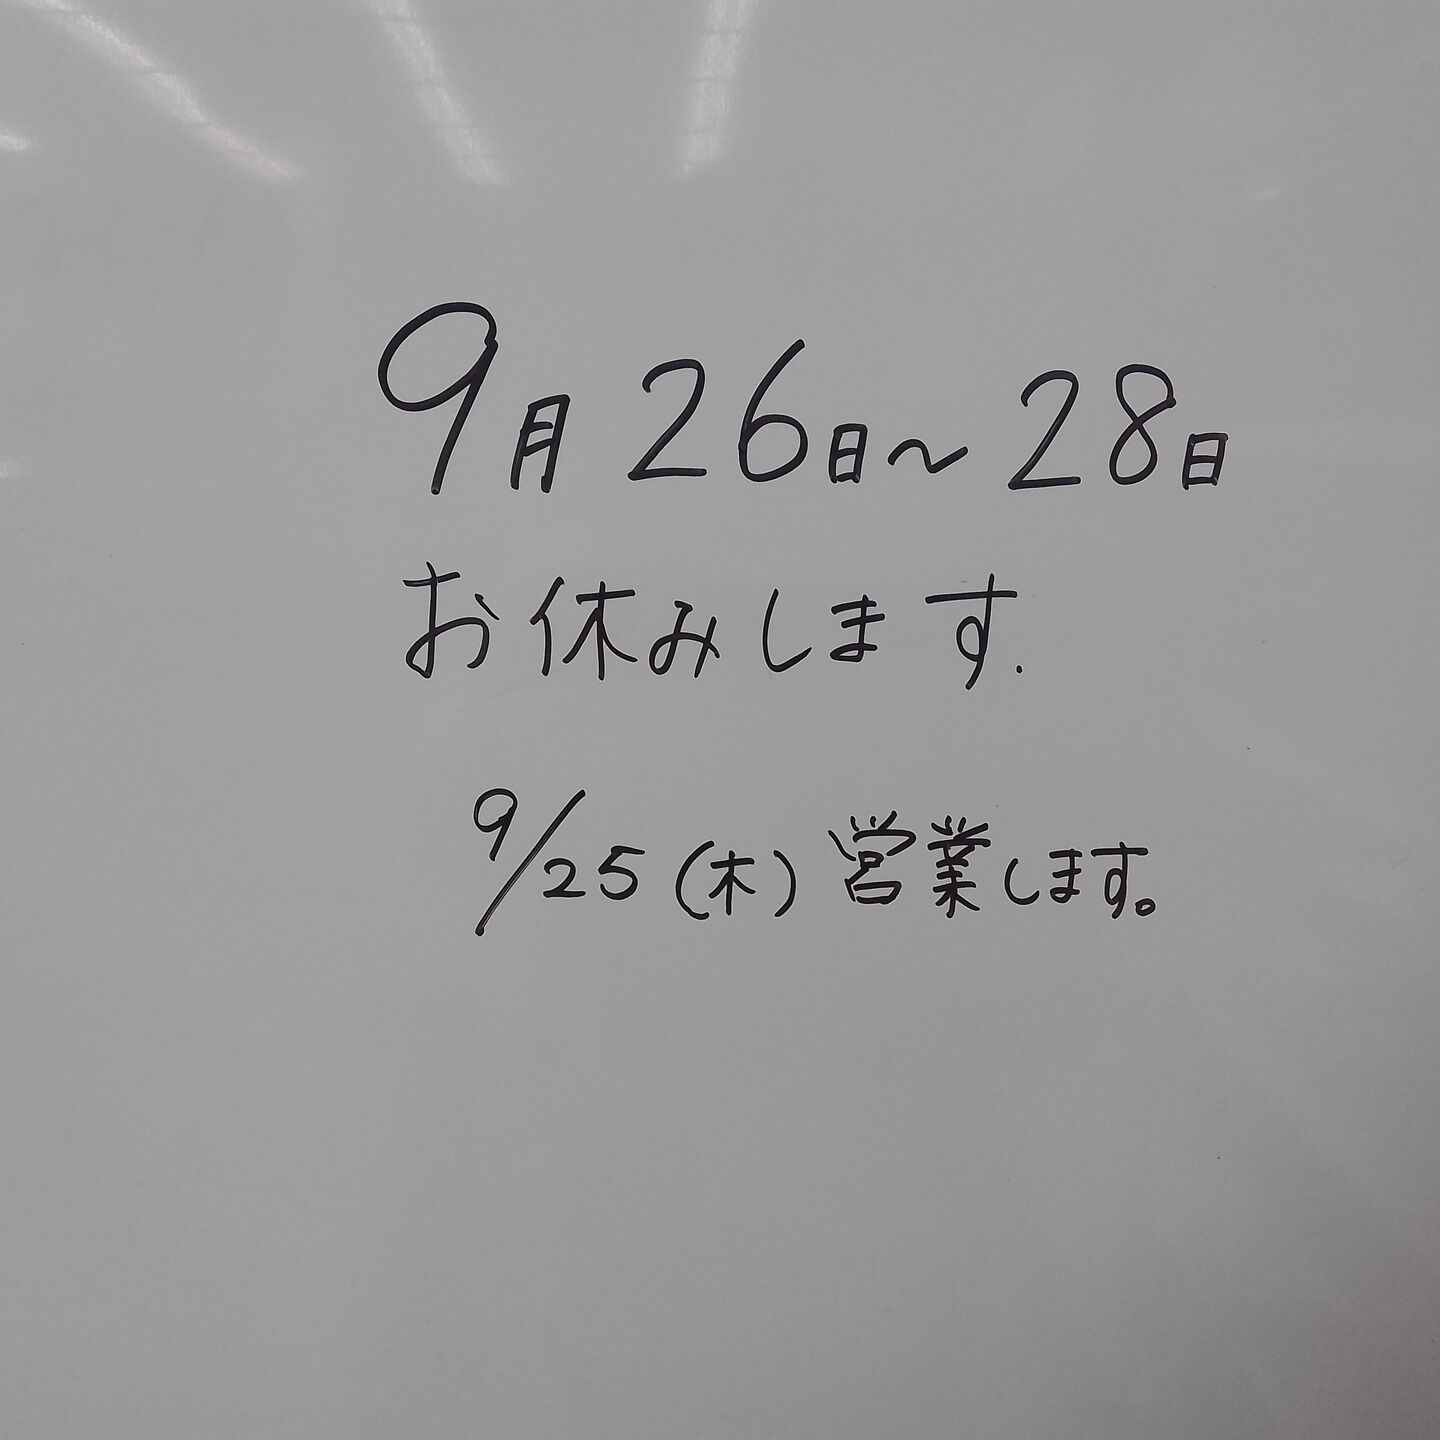 9月26日～28日
お休みします.
9/25(木)営業します。